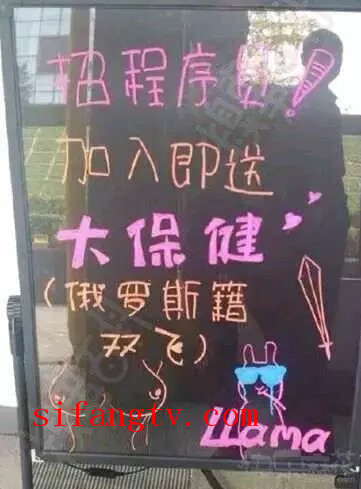 招程序员!
加入即送
大保健
(俄罗斯籍
双飞)
sifangtv.com
LLama